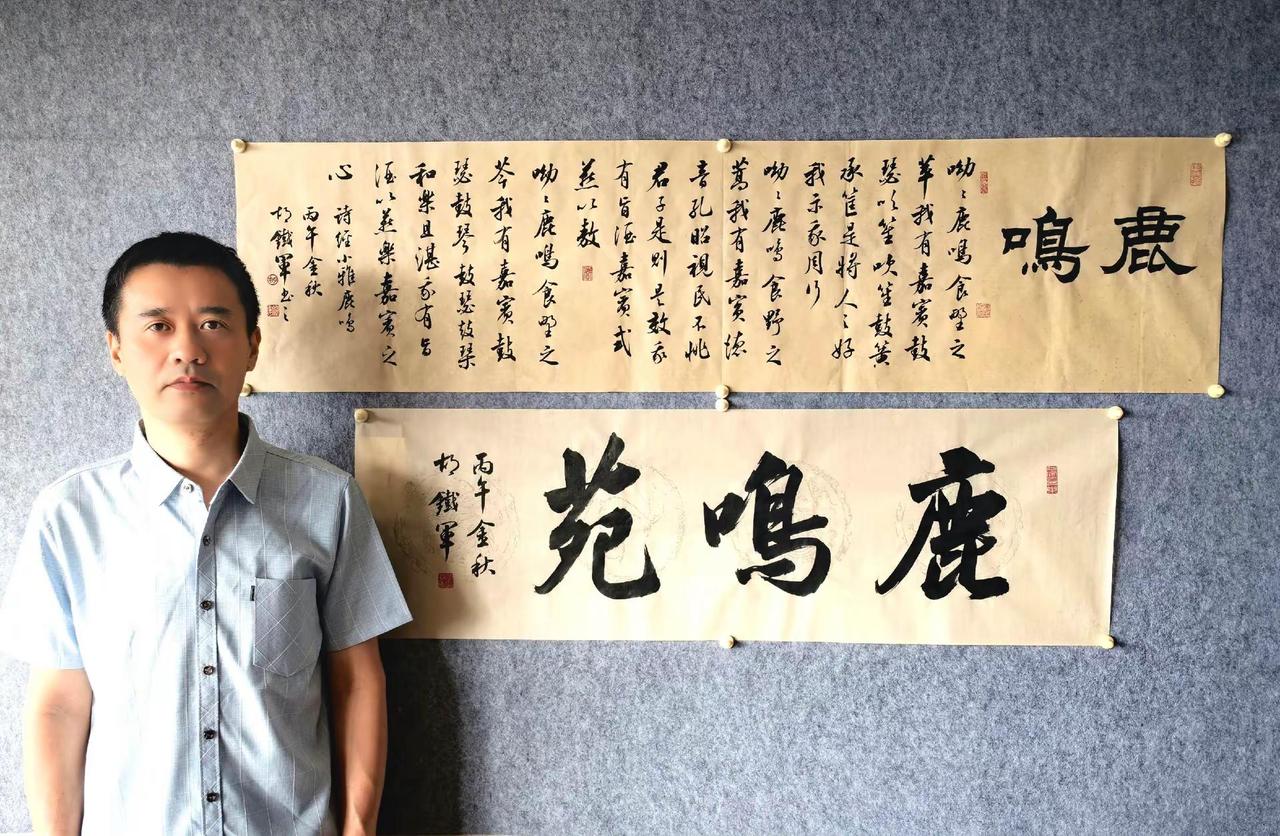 鹿鳴
呦呦鹿鳴食野之
苹我有嘉賓鼓
瑟吹笙吹笙鼓簧
承筐是將人之好
我示我周行
呦呦鹿鳴食野之
蒿我有嘉賓德
音孔昭視民不恌
君子是則是效我
有旨酒嘉賓式
燕以敖
呦呦鹿鳴食野之
芩我有嘉賓鼓
瑟鼓琴鼓瑟鼓琴
和樂且湛我有旨
酒以燕樂嘉賓之
心
詩經小雅鹿鳴
丙午金秋
胡鐵軍書之
鹿鳴苑
丙午金秋
胡鐵軍